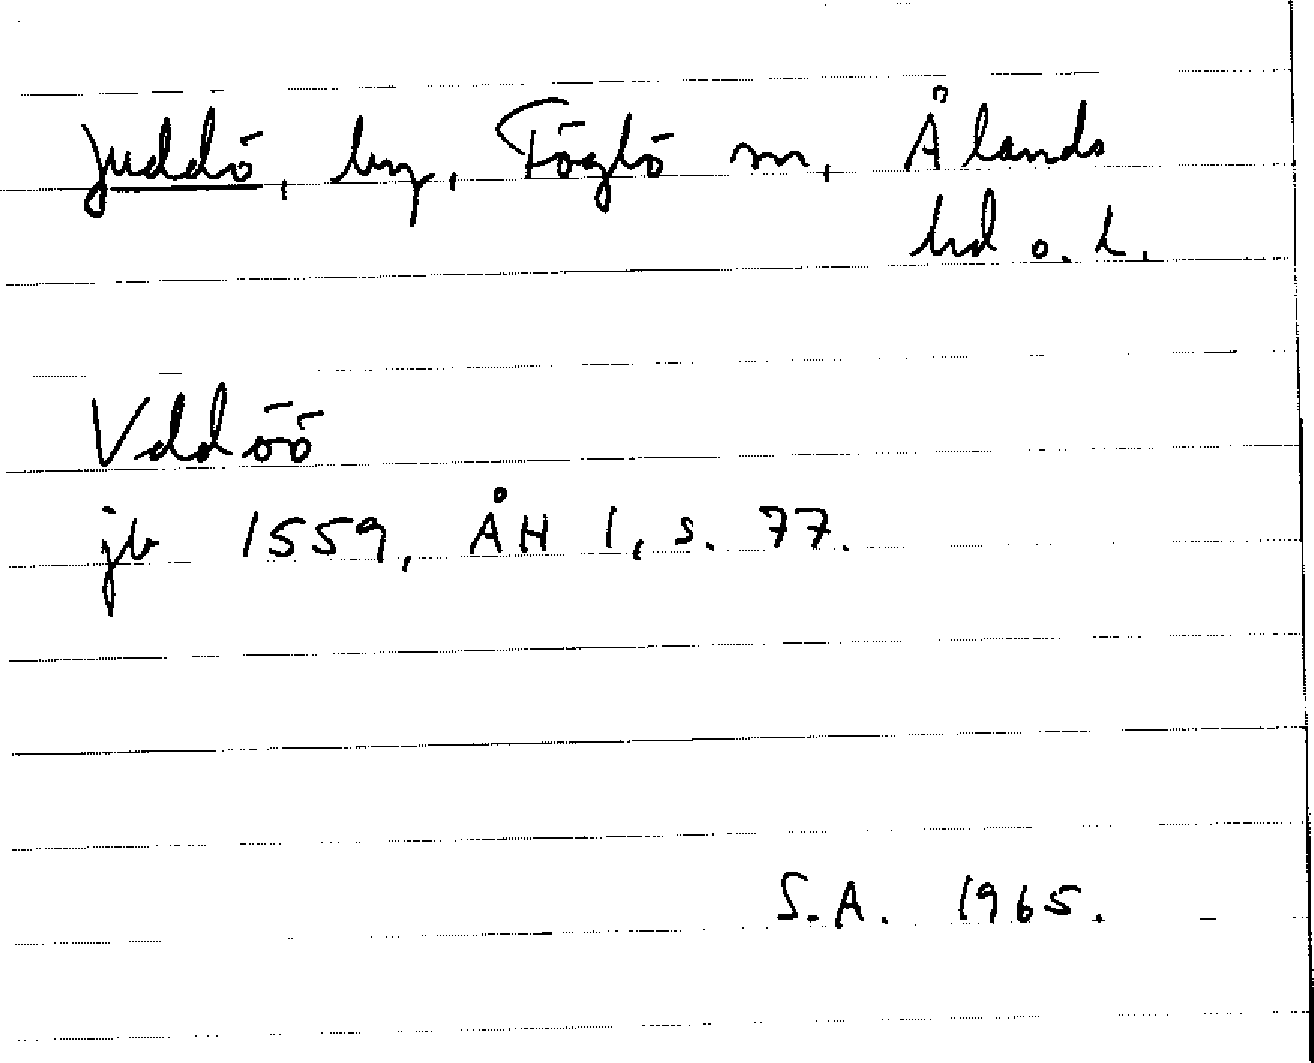 Juddö, by, Föglö sn, Ålands
hd o. L.
Vddöö
jb 1559, ÅH 1, s. 77.
S.A. 1965.